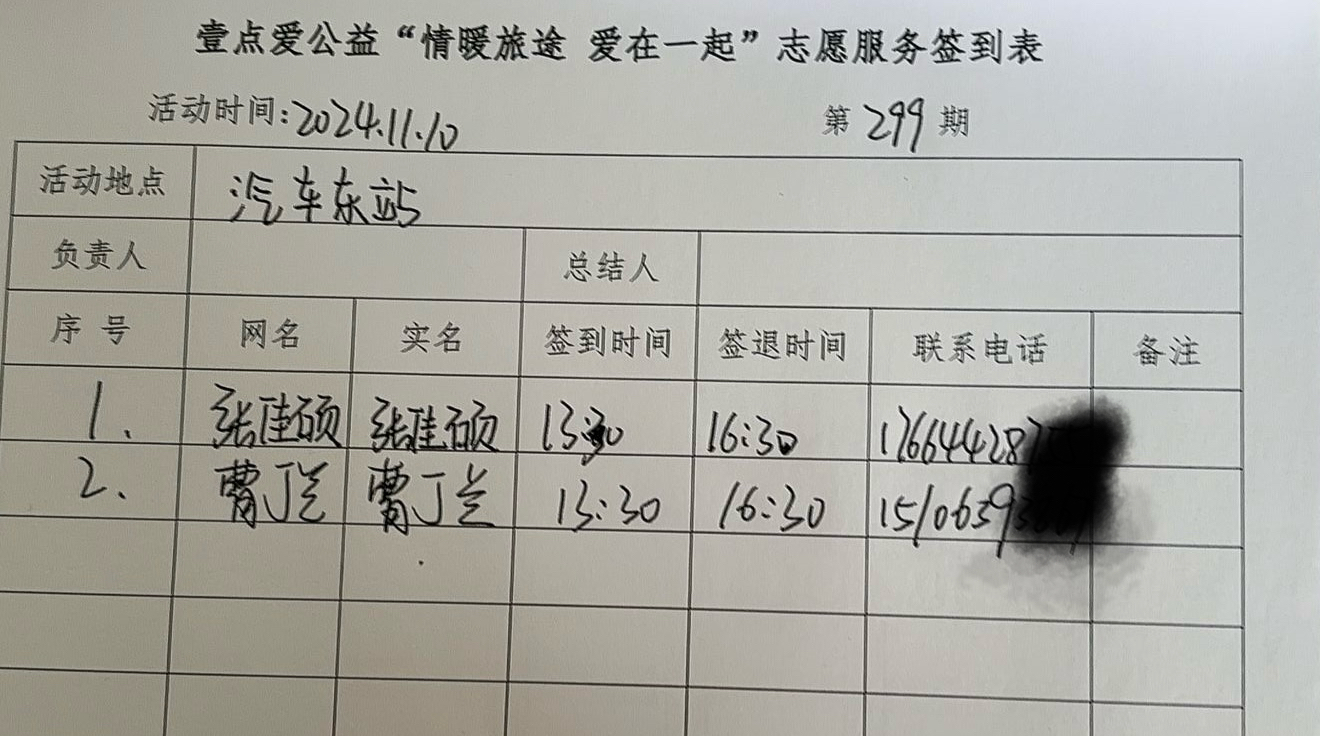 壹点爱公益“情暖旅途 爱在一起”志愿服务签到表
活动时间:2024.11.10 第299期
活动地点 汽车东站
负责人 总结人
序号 网名 实名 签到时间 签退时间 联系电话 备注
1. 张佳硕 张佳硕 13:30 16:30 176644287
2. 曹丁兰 曹丁兰 13:30 16:30 15106393